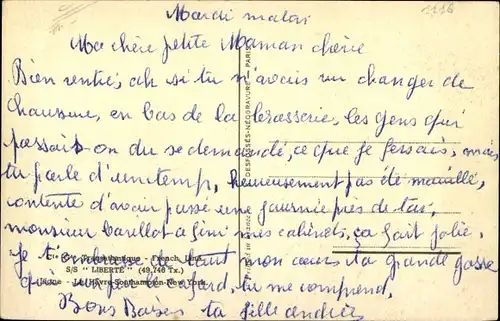 Mardi matin
1116
Ma chère petite Maman chérie
Bien rentré, ah si tu m'avais vu changer de
chaussure, en bas de la brasserie, les gens qui
passait on du se demandé, ce que je fesais, mais
tu parle d'un temp, heureusement pas été mouillé,
contente d'avoir passé une journie près de toi,
monsieur Barillot a fini mes cabinets, ça fait jolie,
Cie Gle Transatlantique - French Line
je t'embrasse de tout mon cœur ta grande gosse
S/S " LIBERTÉ " (49,746 Tx.)
qui un peu le cafard, tu me comprend,
Ligne - Le Havre-Southampton-New York
Bons Baisers ta fille andrée
DESFOSSÉS-NÉOGRAVURE - PARIS